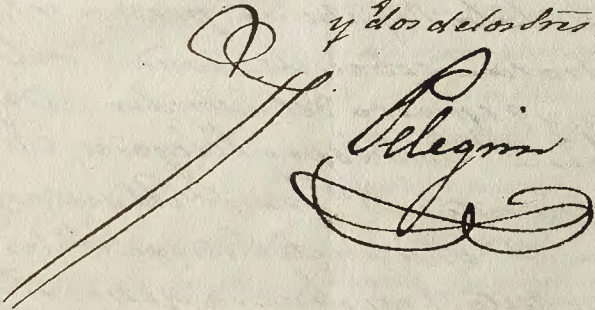 y dos de los Sres
Pelegrin